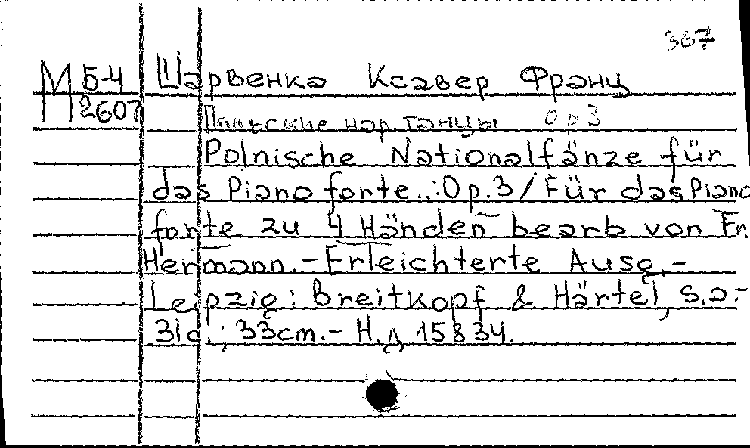 367
М 5-4 Шарвенка Ксавер Франц
2607 Польские нар. танцы op 3
Polnische Nationaltänze für
das Pianoforte.: Op.3 / Für das Piano
forte zu 4 Händen bearb von Fr.
Hermann.-Erleichterte Ausg.-
Leipzig: Breitkopf & Härtel, s.a.-
31c.; 33cm.- Н.д. 15834.